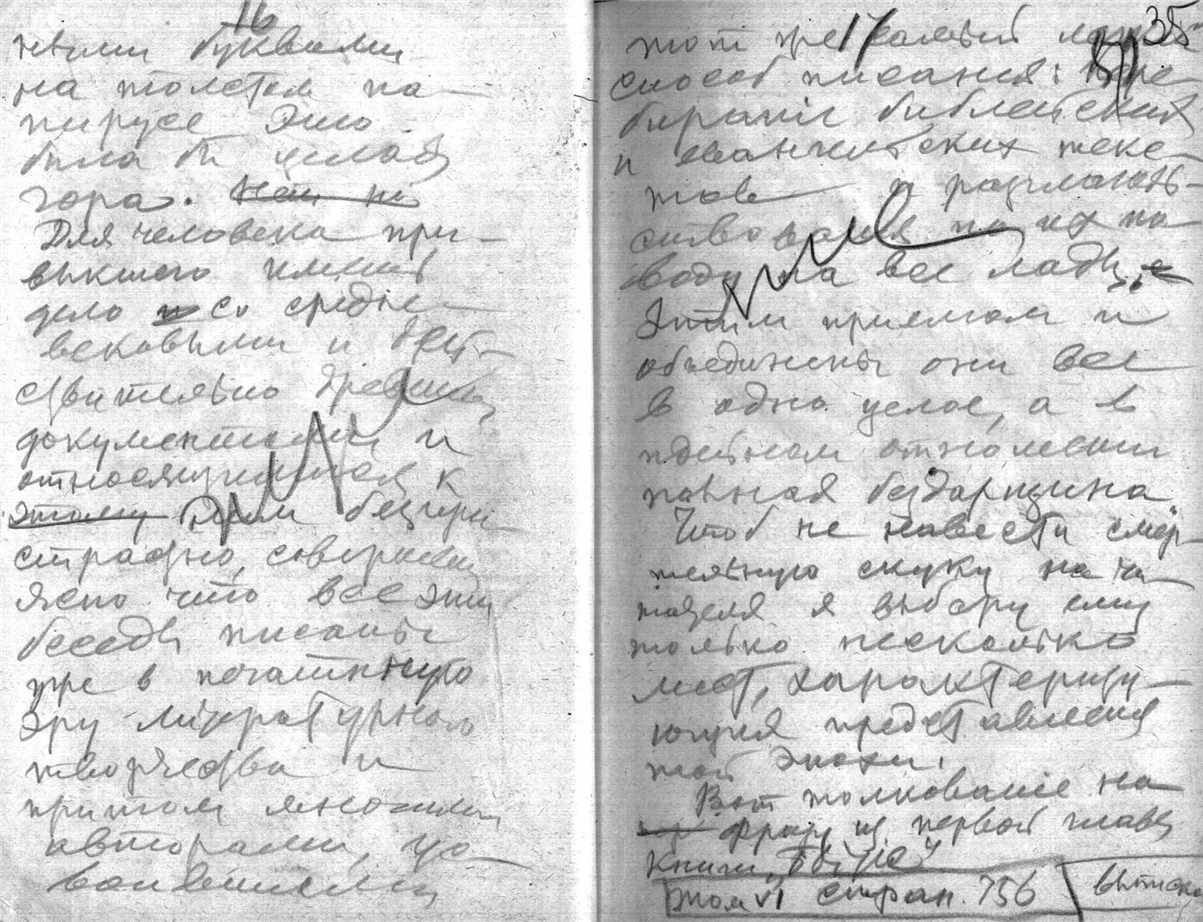 16
ными буквами
на толстом па-
пирусе Это
была бы целая
гора. Нет ни
Для человека при-
выкшего иметь
дело со средне-
вековыми и дей-
ствительно древними
документами и
относящимися к
этому ним безпри-
страстно, совершенно
ясно что все эти
беседы писаны
уже в печатную
эру литературного
творчества и
притом многими
авторами, усво
17
35
тот же самый
способ писания:
бирание библейских
и евангельских текс-
тов и разглаголь-
ствования по их по
воду на все лады,
Этим приемом и
объединены они все
в одно целое, а в
идейном отношении
полная бездарщина
Чтоб не навести смер-
тельную скуку на чи-
тателя я выберу ему
только несколько
мест, характеризу-
ющия представления
той эпохи.
Вот толкование на
фразу из первой главы
книги „Бытие"
том VI стран. 756
выписка